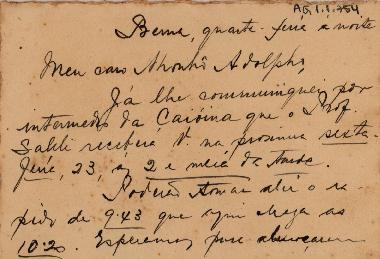 AG.1.1.754
Berna, quarta-feira à noite
Meu caro Nhonhô Adolpho,
Já lhe communiquei por
intermedio da Carolina que o Prof.
Sahli receberá V. na proxima sexta-
feira, 23, às 2 e meia da tarde.
Poderão tomar ahi o ra-
pido de 9.43 que aqui chega as
10.20. Esperemos para almoçarem